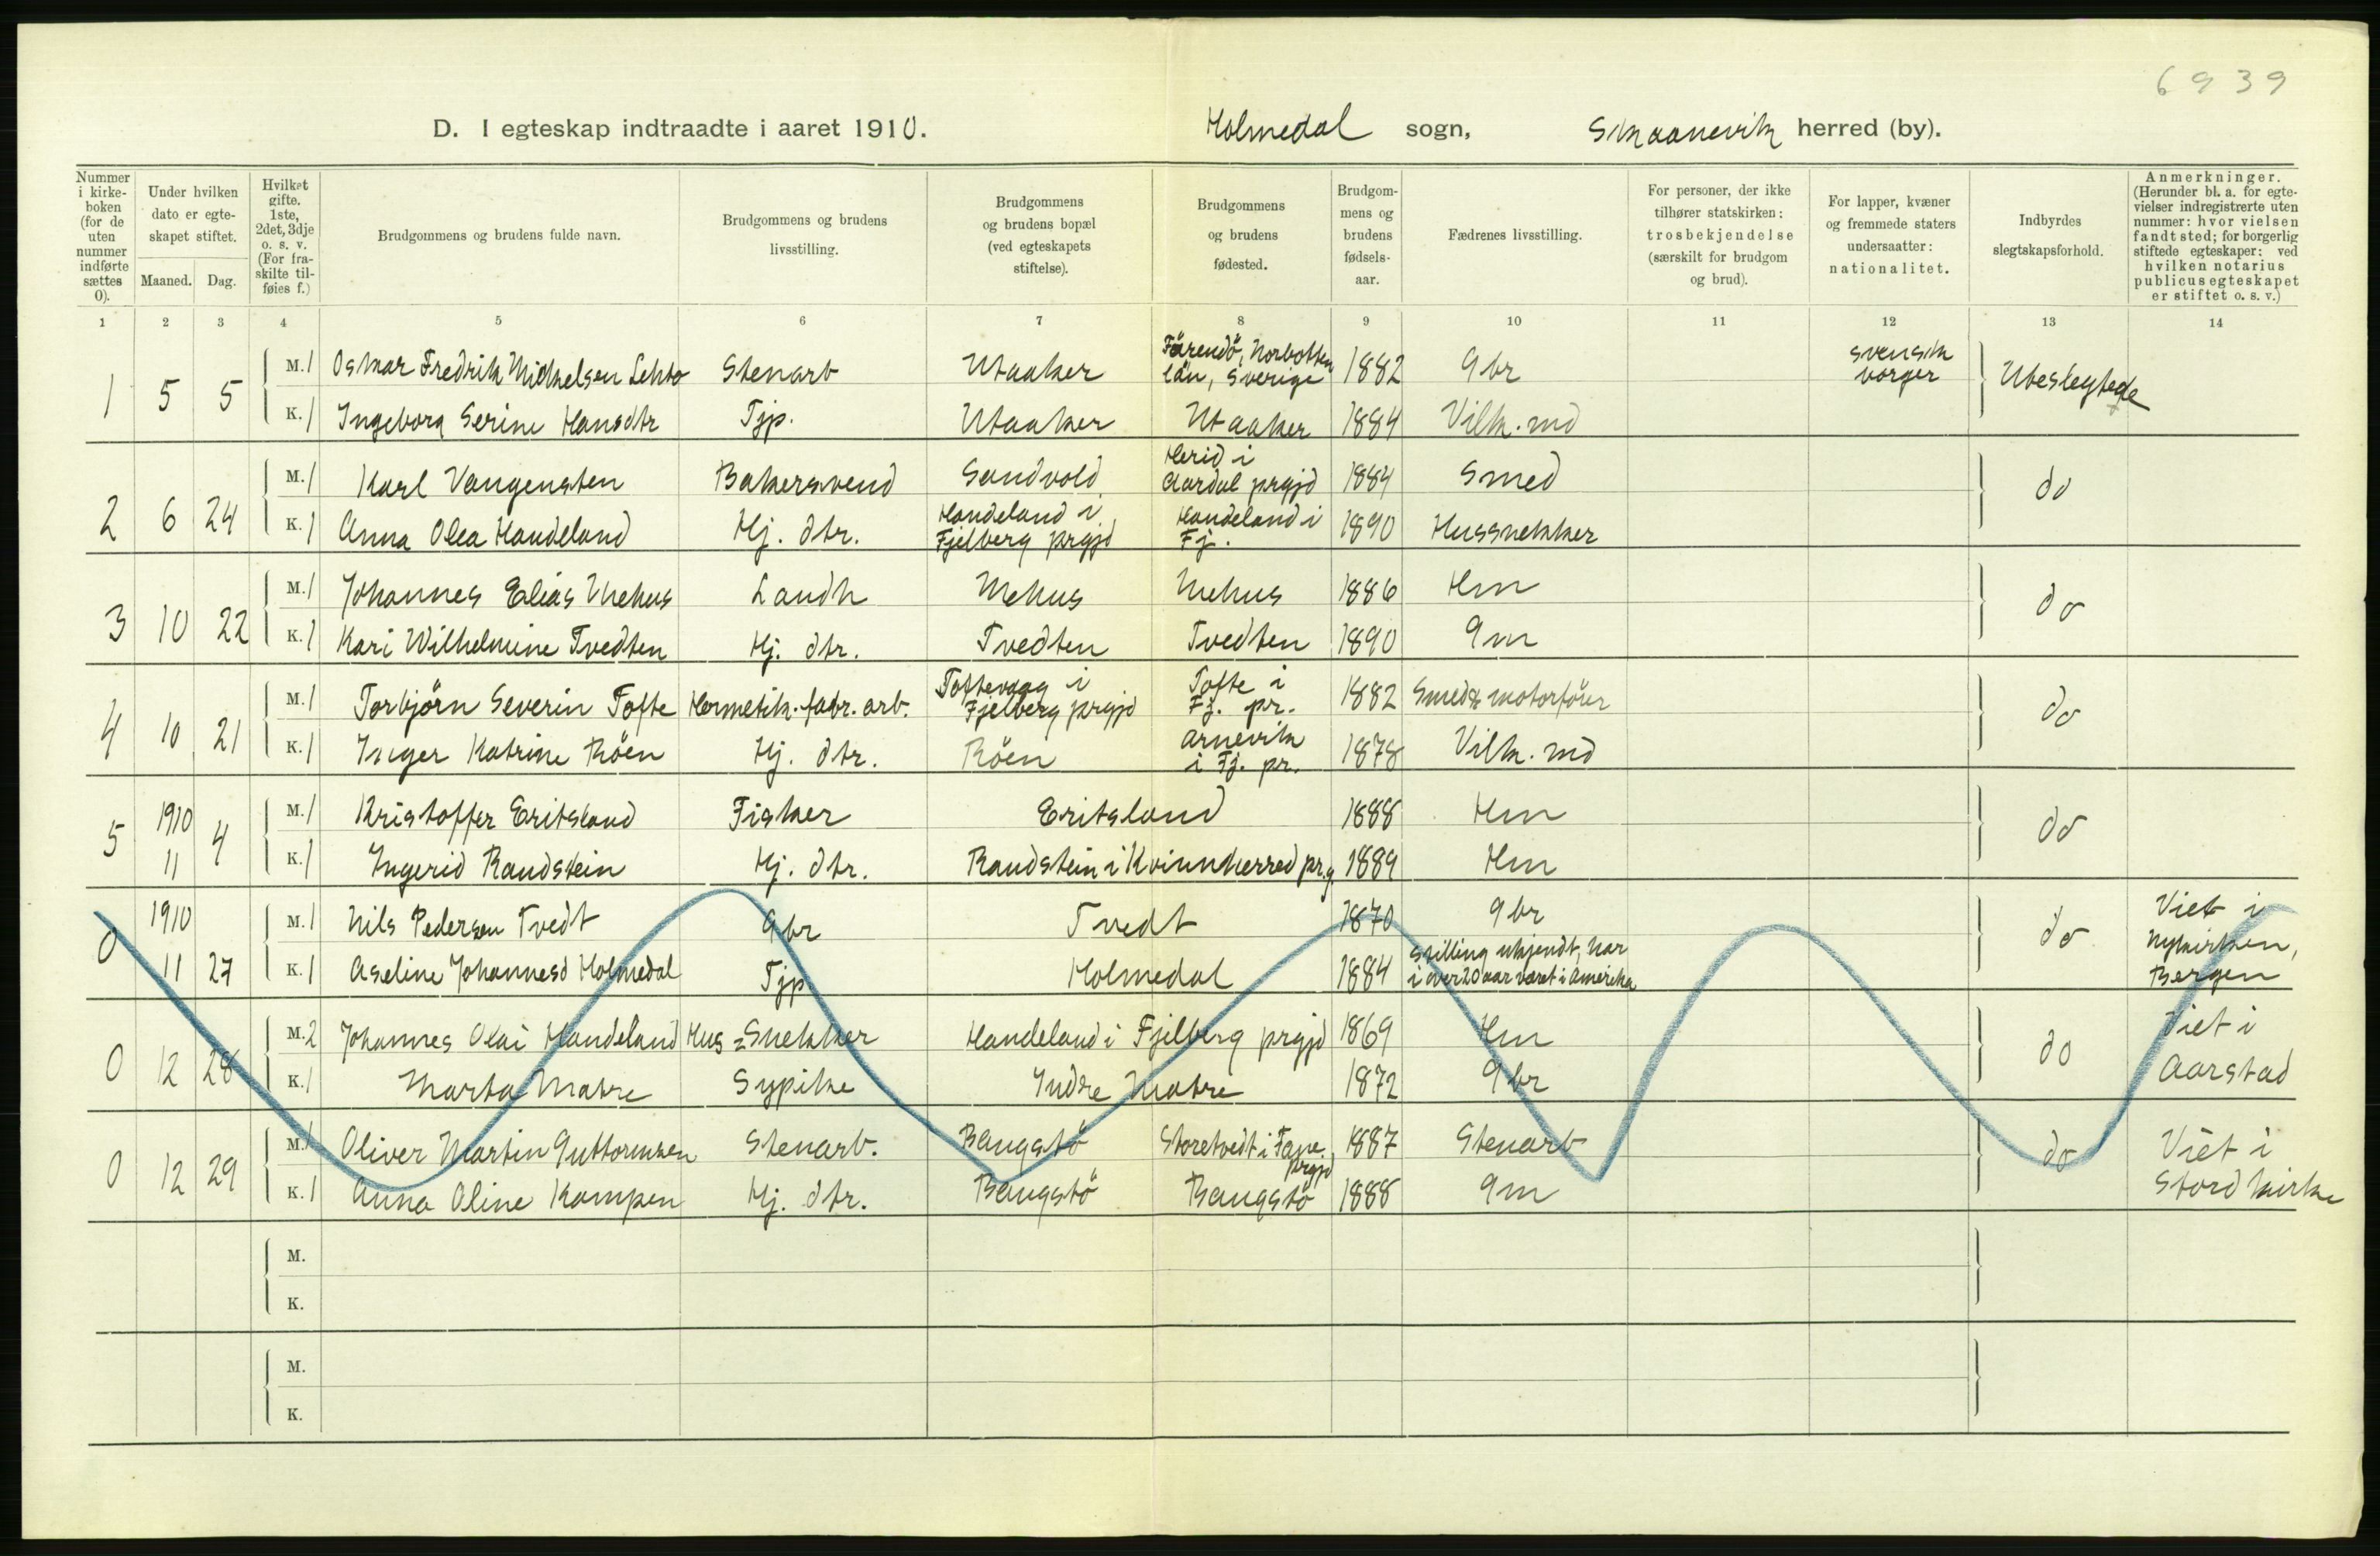 6939
D. I egteskap indtraadte i aaret 1910. Holmedal sogn, Skaanevik herred (by).
Nummer i kirke-boken (for de uten nummer indførte sættes 0).
Under hvilken dato er egte-skapet stiftet.
Maaned. Dag.
Hvilket gifte. 1ste, 2det, 3dje o. s. v. (For fra-skilte til-føies f.)
Brudgommens og brudens fulde navn.
Brudgommens og brudens livsstilling.
Brudgommens og brudens bopæl (ved egteskapets stiftelse).
Brudgommens og brudens fødested.
Brudgom-mens og brudens fødsels-aar.
Fædrenes livsstilling.
For personer, der ikke tilhører statskirken: trosbekjendelse (særskilt for brudgom og brud).
For lapper, kvæner og fremmede staters undersaatter: nationalitet.
Indbyrdes slegtskapsforhold.
Anmerkninger. (Herunder bl. a. for egte-vielser indregistrerte uten nummer: hvor vielsen fandt sted; for borgerlig stiftede egteskaper: ved hvilken notarius publicus egteskapet er stiftet o. s. v.)
1 2 3 4 5 6 7 8 9 10 11 12 13 14
1 5 5 M. 1 Oskar Fredrik Mickelsen Lehto Stenarb Utaaker Färendö, Norbotten län, Sverige 1882 Gbr svensk borger Ubeslegtede
K. 1 Ingeborg Serine Hansdtr Tjp. Utaaker Utaaker 1884 Vilk. md
2 6 24 M. 1 Karl Vangensten Bakersvend Sandvold Aardal prgjd 1884 Smed do
K. 1 Anna Olea Handeland Hj. dtr. Handeland i Fjelberg prgjd Handeland i Fj. 1890 Hussnekker
3 10 22 M. 1 Johannes Elias Mehus Landh Mehus Mehus 1886 Hm do
K. 1 Kari Wilhelmine Tvedten Hj. dtr. Tvedten Tvedten 1890 Gm
4 10 21 M. 1 Torbjörn Severin Tofte Hermetik.fabr.arb. Toftevaag i Fjelberg prgjd Tofte i Fj. pr. 1882 Smed & motorförer do
K. 1 Inger Katrine Röen Hj. dtr. Röen Arnevik i Fj. pr. 1878 Vilk. md
5 1910 11 4 M. 1 Kristoffer Eritsland Fisker Eritsland 1888 Hm do
K. 1 Ingerid Raudstein Hj. dtr. Raudstein i Kvinnherred pr.g. 1889 Hm
0 1910 11 27 M. 1 Nils Pedersen Tvedt Gbr Tvedt 1870 Gbr do Viet i Nykirken, Bergen
K. 1 Aseline Johannesd Holmedal Tjp Holmedal 1884 Stilling ukjendt, har i over 20 aar været i Amerika
0 12 28 M. 2 Johannes Olai Handeland Hus=Snekker Handeland i Fjelberg prgjd 1869 Hm do Viet i Aarstad
K. 1 Marta Matre Sypike Indre Matre 1872 Gbr
0 12 29 M. 1 Oliver Martin Guttormsen Stenarb. Baugstö Storetvedt i Fane prgjd 1887 Stenarb do Viet i Stord kirke
K. 1 Anna Oline Kampen Hj. dtr. Baugstö Baugstö 1888 Gm
M.
K.
M.
K.